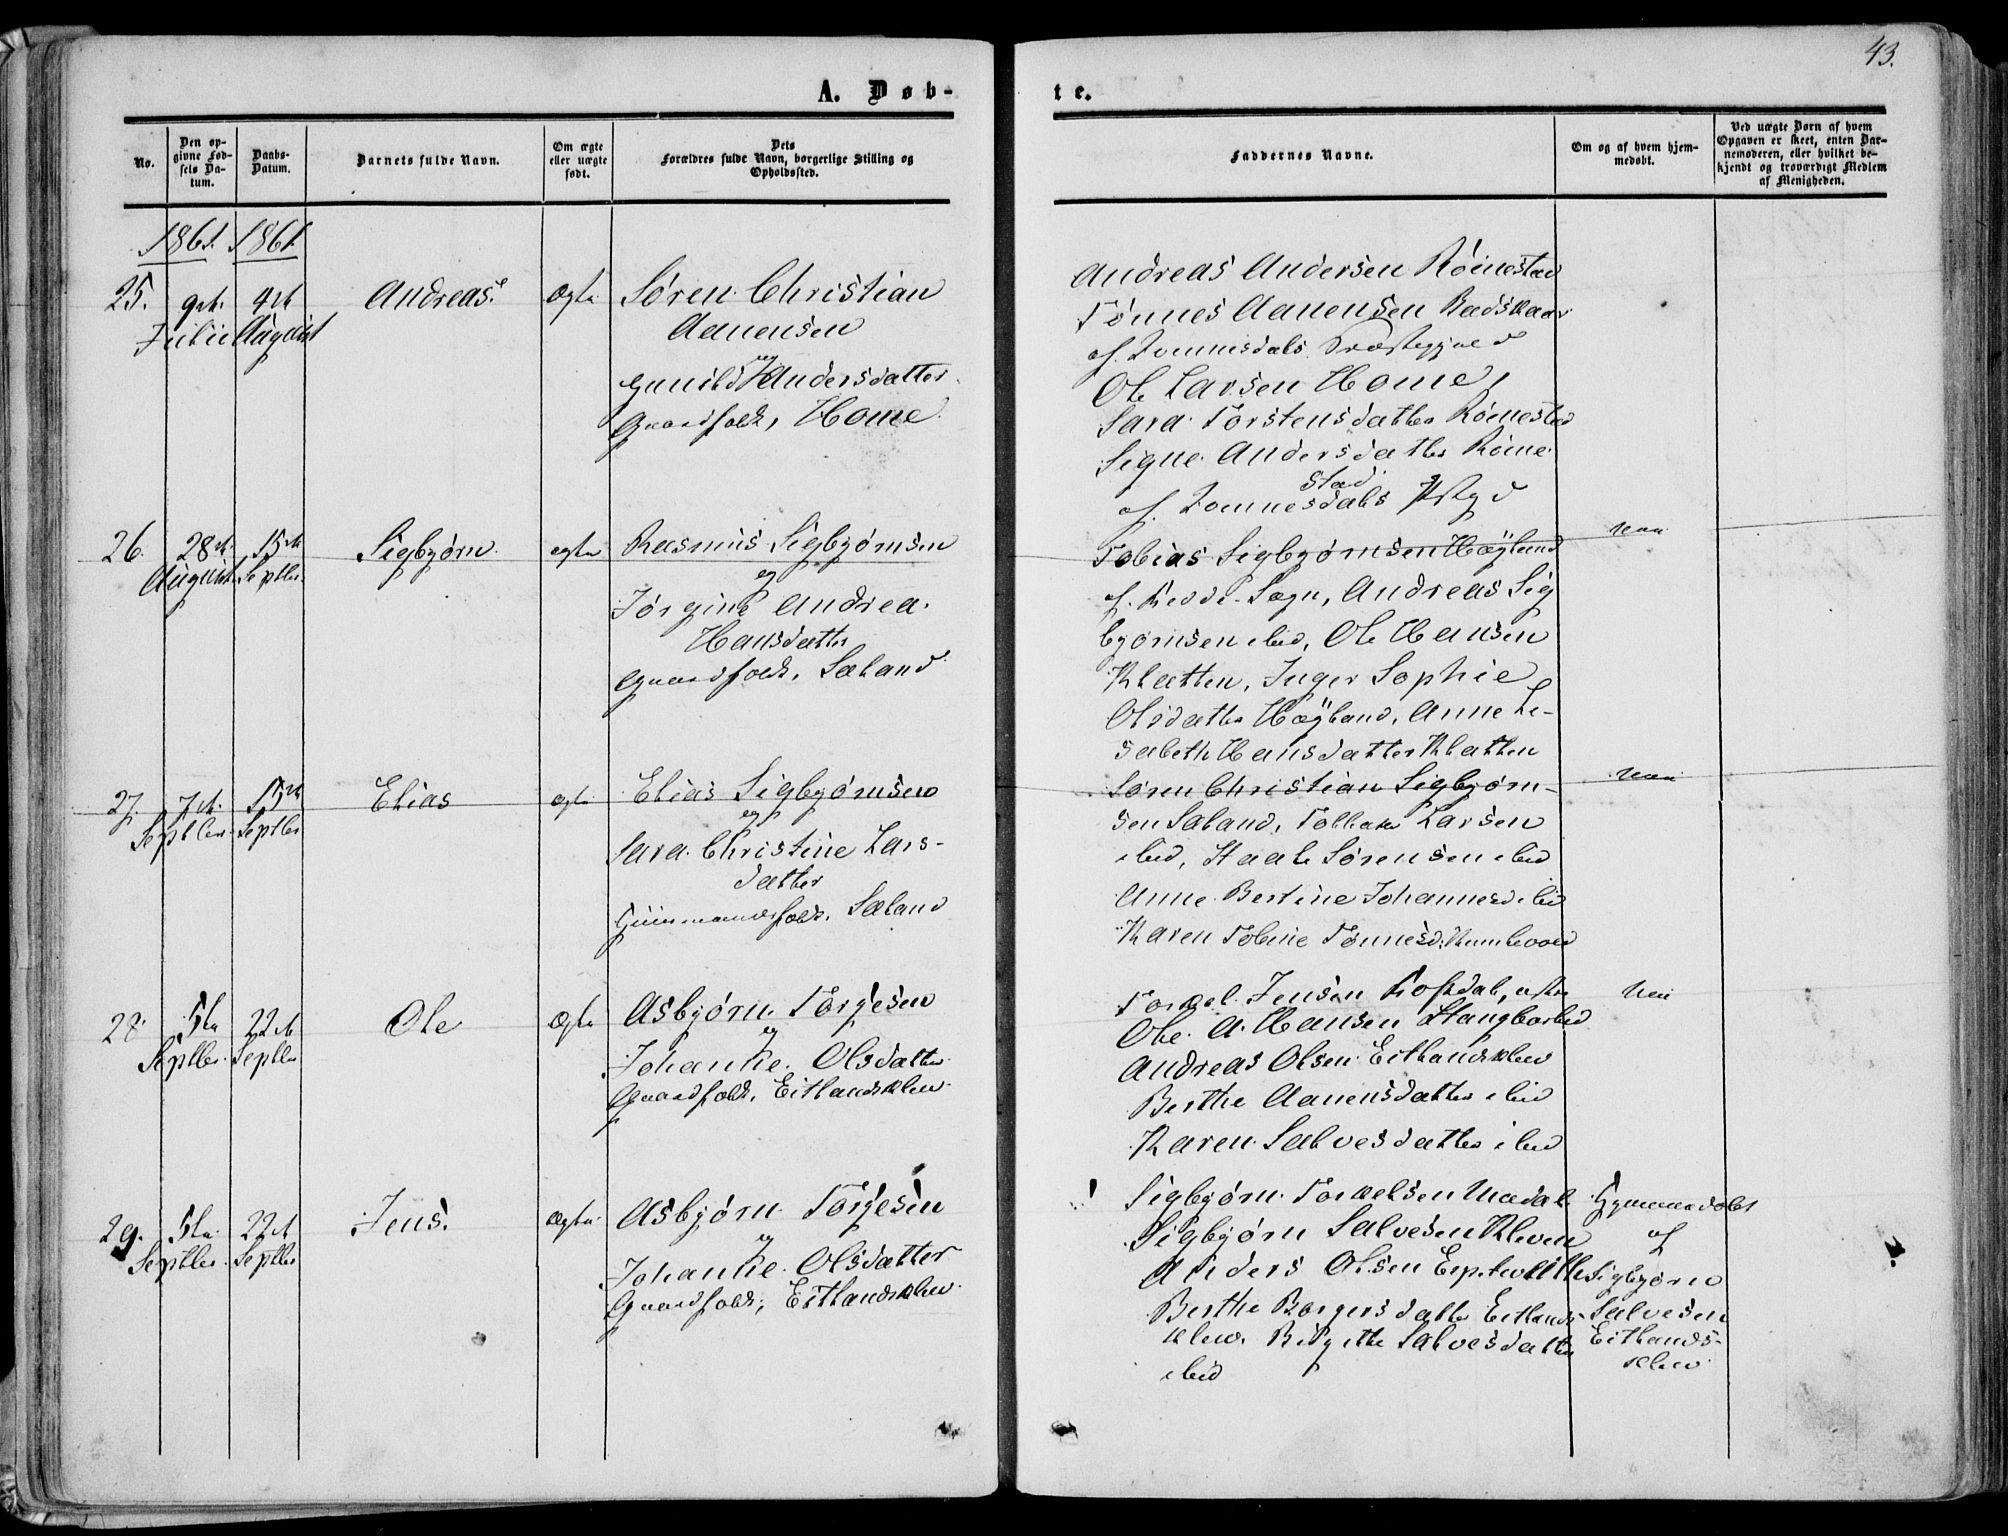 43.
A. Døb-
te.
No.
Den opgivne Fødsels Datum.
Daabs-Datum.
Barnets fulde Navn.
Om ægte eller uægte født.
Dets Forældres fulde Navn, borgerlige Stilling og Opholdssted.
Faddernes Navne.
Om og af hvem hjemmedøbt.
Ved uægte Børn af hvem Opgaven er skeet, enten Barnemoderen, eller hvilket bekjendt og troværdigt Medlem af Menigheden.
1861. 1861.
25.
9de Julii
4de August
Andreas.
Ægte
Søren Christian
Aanensen
og
Gunild Andersdatter
Gaardfolk, Home
Andreas Andersen Römestad
Tönnes Aanensen
af Præstegjeld
Ole Larsen Home,
Sara Torstensdatter Römestad
Signe Andersdatter Röme
stad
af
26.
28de August
15de Septbr.
Sigbjørn
ægte
Rasmus Sigbjørnsen
og
Jørgine Andrea
Hansdatter
Gaardfolk, Sæland
Tobias Sigbjørnsen Høÿland
af Sogn, Andreas Sig
bjørnsen ibid, Ole Hansen
Klatten, Inger Sophie
Olsdatter Høÿland, Anne Le-
sabeth Hansdatter Klatten
Nei
27.
7de Septber
15de Septbr
Elias
ægte
Elias Sigbjørnsen
og
Sara Christine Lars-
datter
Sæland
Søren Christian Sigbjørn-
sen Sæland, Larsen
ibid, Staale Sørensen ibid
Anne Bertine Johannesd. ibid
Karen Tobine Tønnesd.
Nei
28.
5te Septbr.
22de Septbr
Ole
Ægte
Asbjørn Torgesen
og
Johanne Olsdatter
Gaardfolk, Eitlandsklev
Torkel Jensen
Ole A. Hansen Stangborlid
Andreas Olsen Eitlandsklev
Berthe Aanensdatter ibid
Karen Salvesdatter ibid
Nei
29.
5te Septbr.
22de Septbr
Jens.
Ægte
Asbjørn Torgesen
og
Johanne Olsdatter
Gaardfolk, Eitlandsklev
Sigbjørn Torkelsen
Sigbjørn Salvesen Kleven
Anders Olsen
Berthe Børgersdatter Eitlands-
klev. Birgitte Salvesdatter
ibid
Hjemmedøbt
af
Sigbjørn
Salvesen
Eitlands-
klev